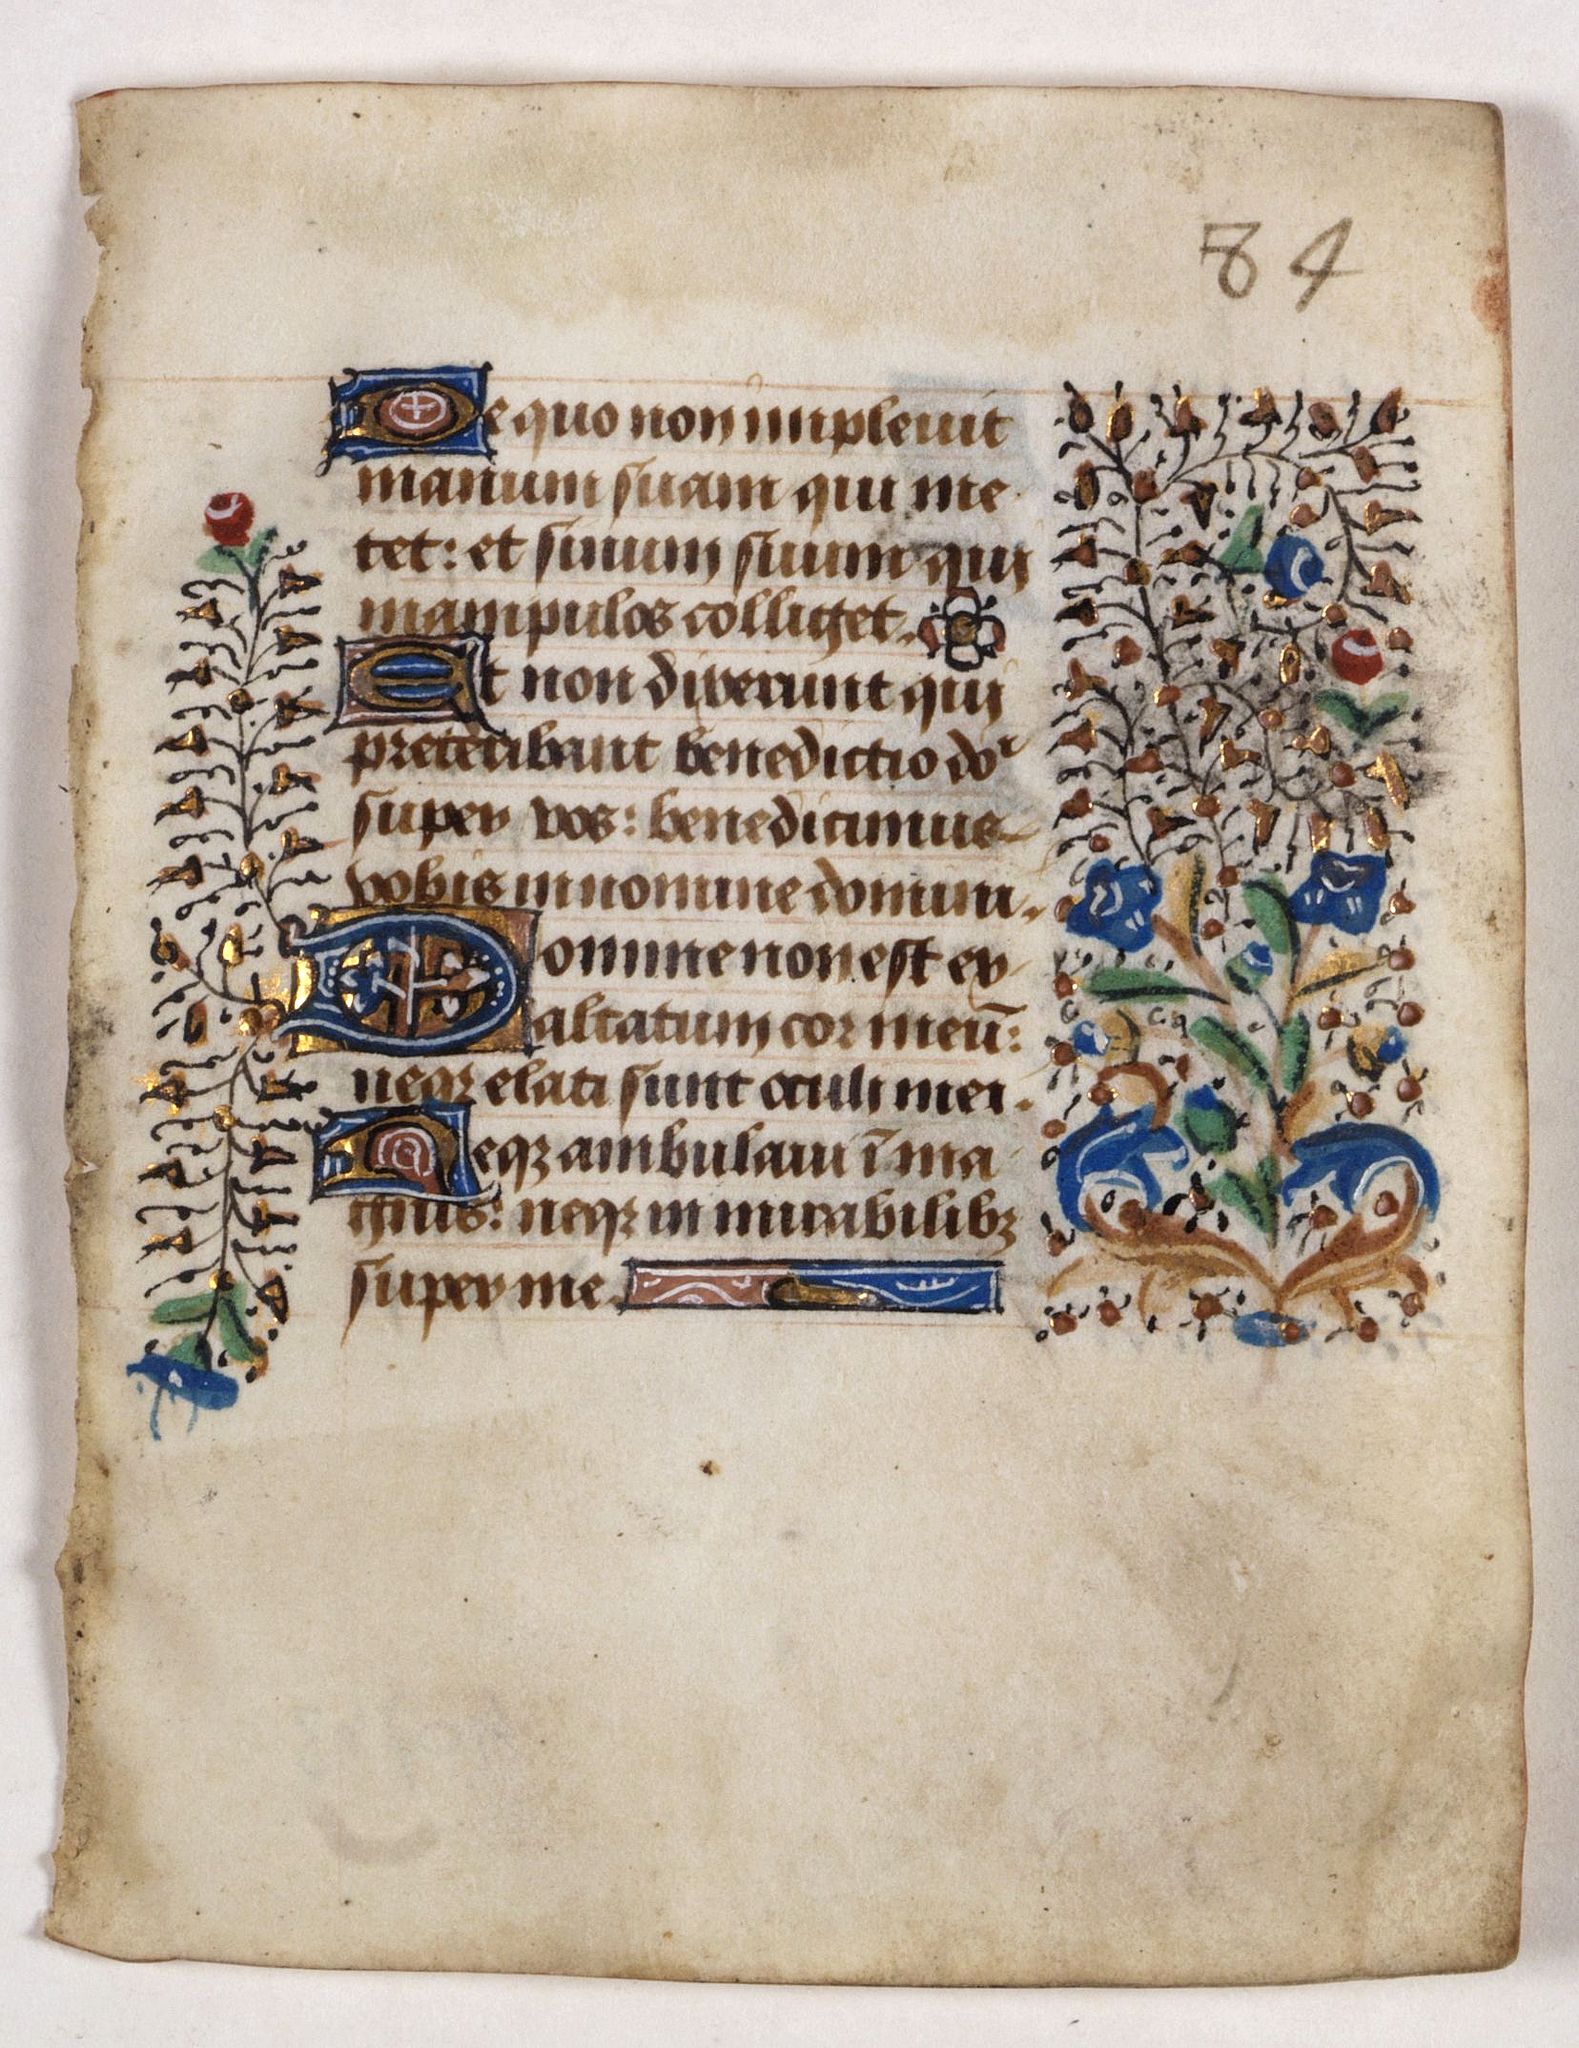 84
De quo non impleuit
manum suam qui me
tet: et sinum suum qui
manipulos colliget.
Et non dixerunt qui
preteribant benedictio doı
super vos: benedicimus
vobis in nomine domini.
Domine non est ex
altatum cor meū:
neqꝫ elati sunt oculi mei.
Neqꝫ ambulaui ī ma
gnis: neqꝫ in mirabilibꝫ
super me.